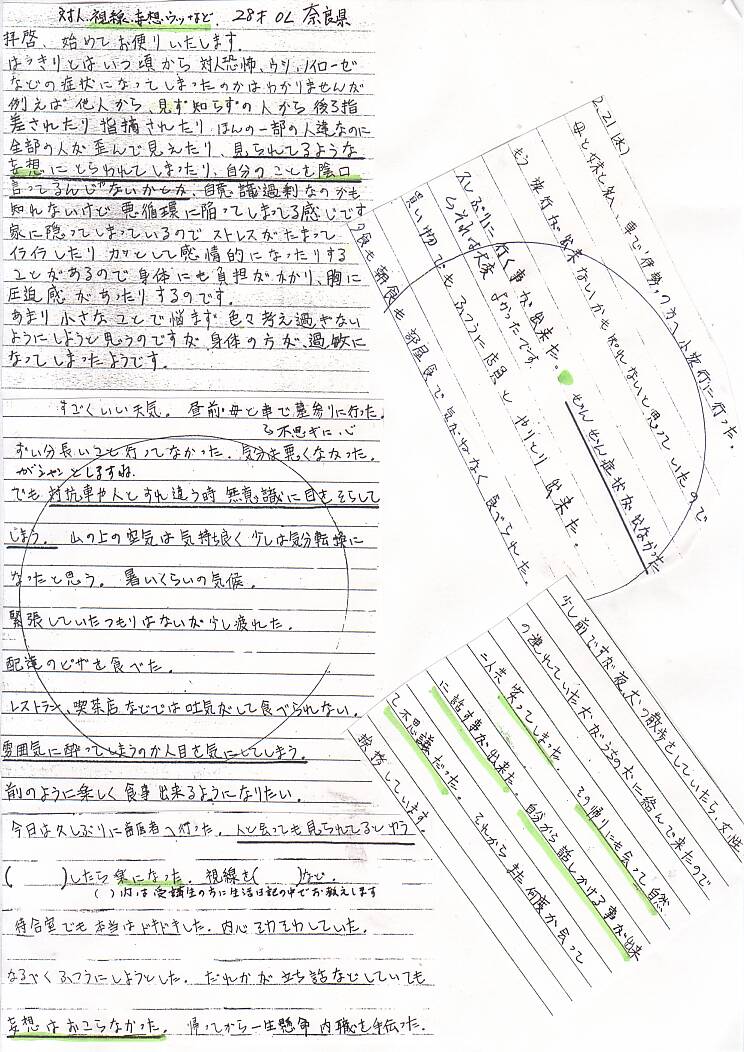 対人、視線、妄想、ウツなど. 28才 OL 奈良県
拝啓、始めてお便りいたします.
はっきりとはいつ頃から対人恐怖、ウツ、ノイローゼ
などの症状になってしまったのかはわかりませんが
例えば他人から、見ず知らずの人から後ろ指
差されたり指摘されたり、ほんの一部の人達なのに
全部の人が歪んで見えたり、見られてるような
妄想にとらわれてしまったり、自分のことを陰口
言ってるんじゃないかとか、自意識過剰なのかも
知れないけど悪循環に陥ってしまってる感じです
家に隠ってしまっているのでストレスがたまって
イライラしたりカッとして感情的になったりする
ことがあるので身体にも負担がかかり、胸に
圧迫感があったりするのです.
あまり小さなことで悩まず色々考え過ぎない
ようにしようと思うのですが身体の方が、過敏に
なってしまったようです.
すごくいい天気。昼前母と車で墓参りに行った.
る不思ぎに.心
ずい分長いこと行ってなかった. 気分は悪くなかった.
がシャンとしますね.
でも対抗車や人とすれ違う時無意識に目をそらして
しまう. 山の上の空気は気持ち良く少しは気分転換に
なったと思う. 暑いくらいの気候.
緊張していたつもりはないが少し疲れた.
配達のピザを食べた.
レストラン、喫茶店などでは吐気がして食べられない.
雰囲気に酔ってしまうのか人目を気にしてしまう.
前のように楽しく食事出来るようになりたい.
今日は久しぶりに歯医者へ行った. 人と会っても見られてるとゆう
( )したら楽になった. 視線を( )など.
( )内は受講生の方に生活日記の中でお教えします
待合室でも本当はドキドキした. 内心そわそわしていた.
なるべくふつうにしようとした. だれかが立ち話などしていても
妄想はおこらなかった. 帰ってから一生懸命内職を手伝った.
2、21(水)
母と妹と私、車で伊勢の方へ小旅行に行った.
もう旅行が出来ないかも知れないと思っていたので
久しぶりに行く事が出来た. ぜんぜん症状が出なかった
らそれは大変よかったです
買い物でもふつうに店員とやりとり出来た.
夕食も朝食も部屋食で気がねなく食べられた.
少し前ですが夜、犬の散歩をしていたら、女性
の連れていた犬がうちの犬に絡んで来たので
二人共笑ってしまった. その帰りにも会って自然
に話す事が出来た. 自分から話しかける事が出来
て不思議だった. それからまた何度か会って
挨拶しています.